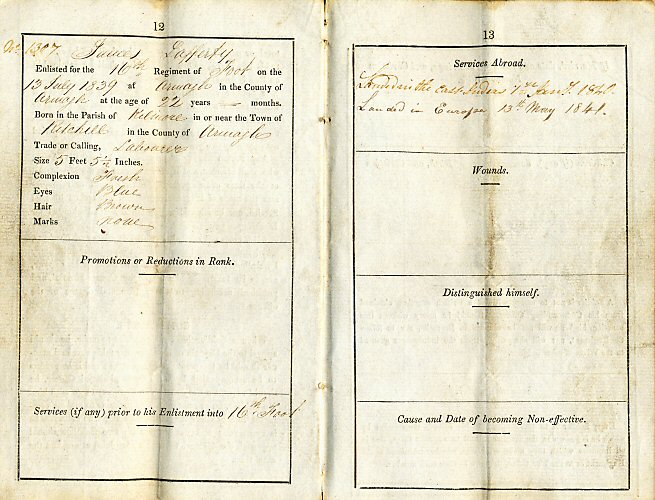 12
No. 1307. James Lafferty
Enlisted for the 16th Regiment of Foot on the
13 July 1839 at Armagh in the County of
Armagh at the age of 22 years — months.
Born in the Parish of Kilmore in or near the Town of
Richill in the County of Armagh
Trade or Calling, Labourer
Size 5 Feet 5½ Inches.
Complexion Fresh
Eyes Blue
Hair Brown
Marks none
Promotions or Reductions in Rank.
Services (if any) prior to his Enlistment into 16th Foot
13
Services Abroad.
Landed in the East Indies 7th Jany. 1840.
Landed in Europe 13th May 1841.
Wounds.
Distinguished himself.
Cause and Date of becoming Non-effective.